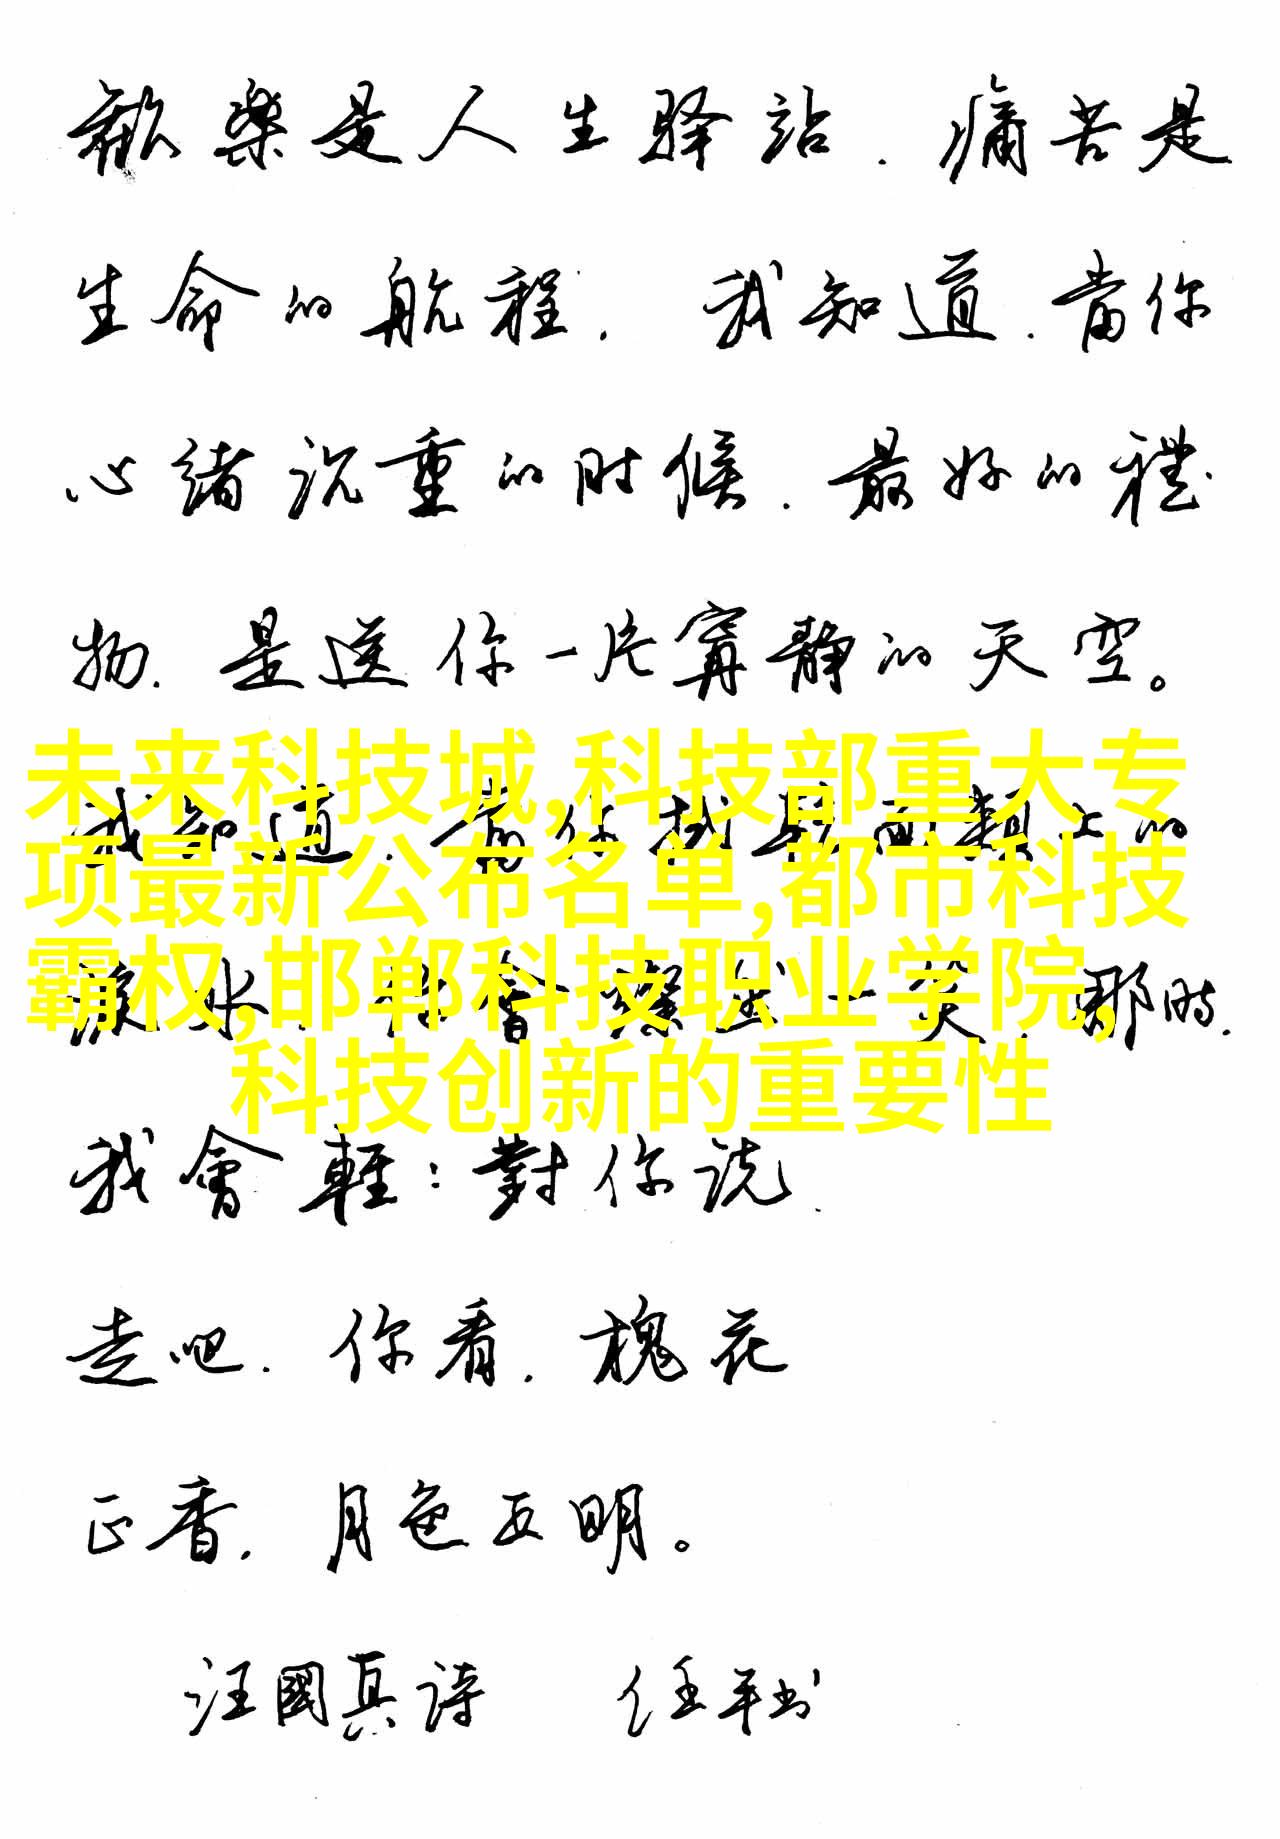 歡樂是人生驿站.痛苦是
生命的航程.我知道.當你
心緒沉重的时候.最好的禮
物.是送你一片寧靜的天空。
未来科技城,科技部重大专
我知道.當你拭 面頰上的
项最新公布名单,都市科技
霸权,邯郸科技职业学院,
水.你會 一笑.那时.
科技创新的重要性
我會輕:對你说.
走吧.你看.槐花
正香.月色正明。
汪國真诗 任平书